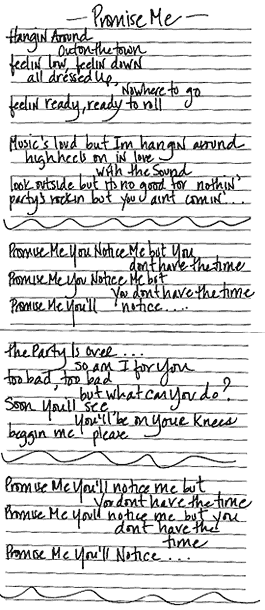 — Promise Me —
Hangin Around
Out on the town
feelin low, feelin down
all dressed up,
Nowhere to go
feelin ready, ready to roll
Music's loud but Im hangin around
high heels on in love
with the sound
look outside but its no good for nothin'
party's rockin but you aint comin'...
Promise Me You Notice Me but You
dont have the time
Promise Me You Notice Me but
You dont have the time
Promise Me You'll notice....
the Party Is over....
so am I for you
too bad, too bad
but what can you do?
Soon you'll see
You'll be on your knees
beggin me please
Promise Me You'll notice me but
You dont have the time
Promise Me Youll notice me but you
dont have the
time
Promise Me You'll Notice....